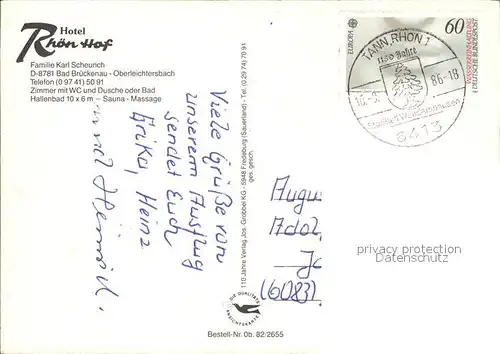 Hotel
Rhön Hof
Familie Karl Scheurich
D-8781 Bad Brückenau - Oberleichtersbach
Telefon (0 97 41) 50 91
Zimmer mit WC und Dusche oder Bad
Hallenbad 10 x 6 m – Sauna - Massage
Viele Grüße von
unserem Ausflug
sendet Euch
Erika, Heinz
und
110 Jahre Verlag Jos. Grobbel KG - 5948 Fredeburg (Sauerland) - Tel. (0 29 74) 70 91
ges. gesch.
DIE QUALITÄTS
ANSICHTSKARTE
Bestell-Nr. 0b. 82/2655
EUROPA
60
DEUTSCHE BUNDESPOST
TANN, RHÖN 1
1150 Jahre
86-18
6413
Augu
Adol
(6083)
privacy protection
Datenschutz